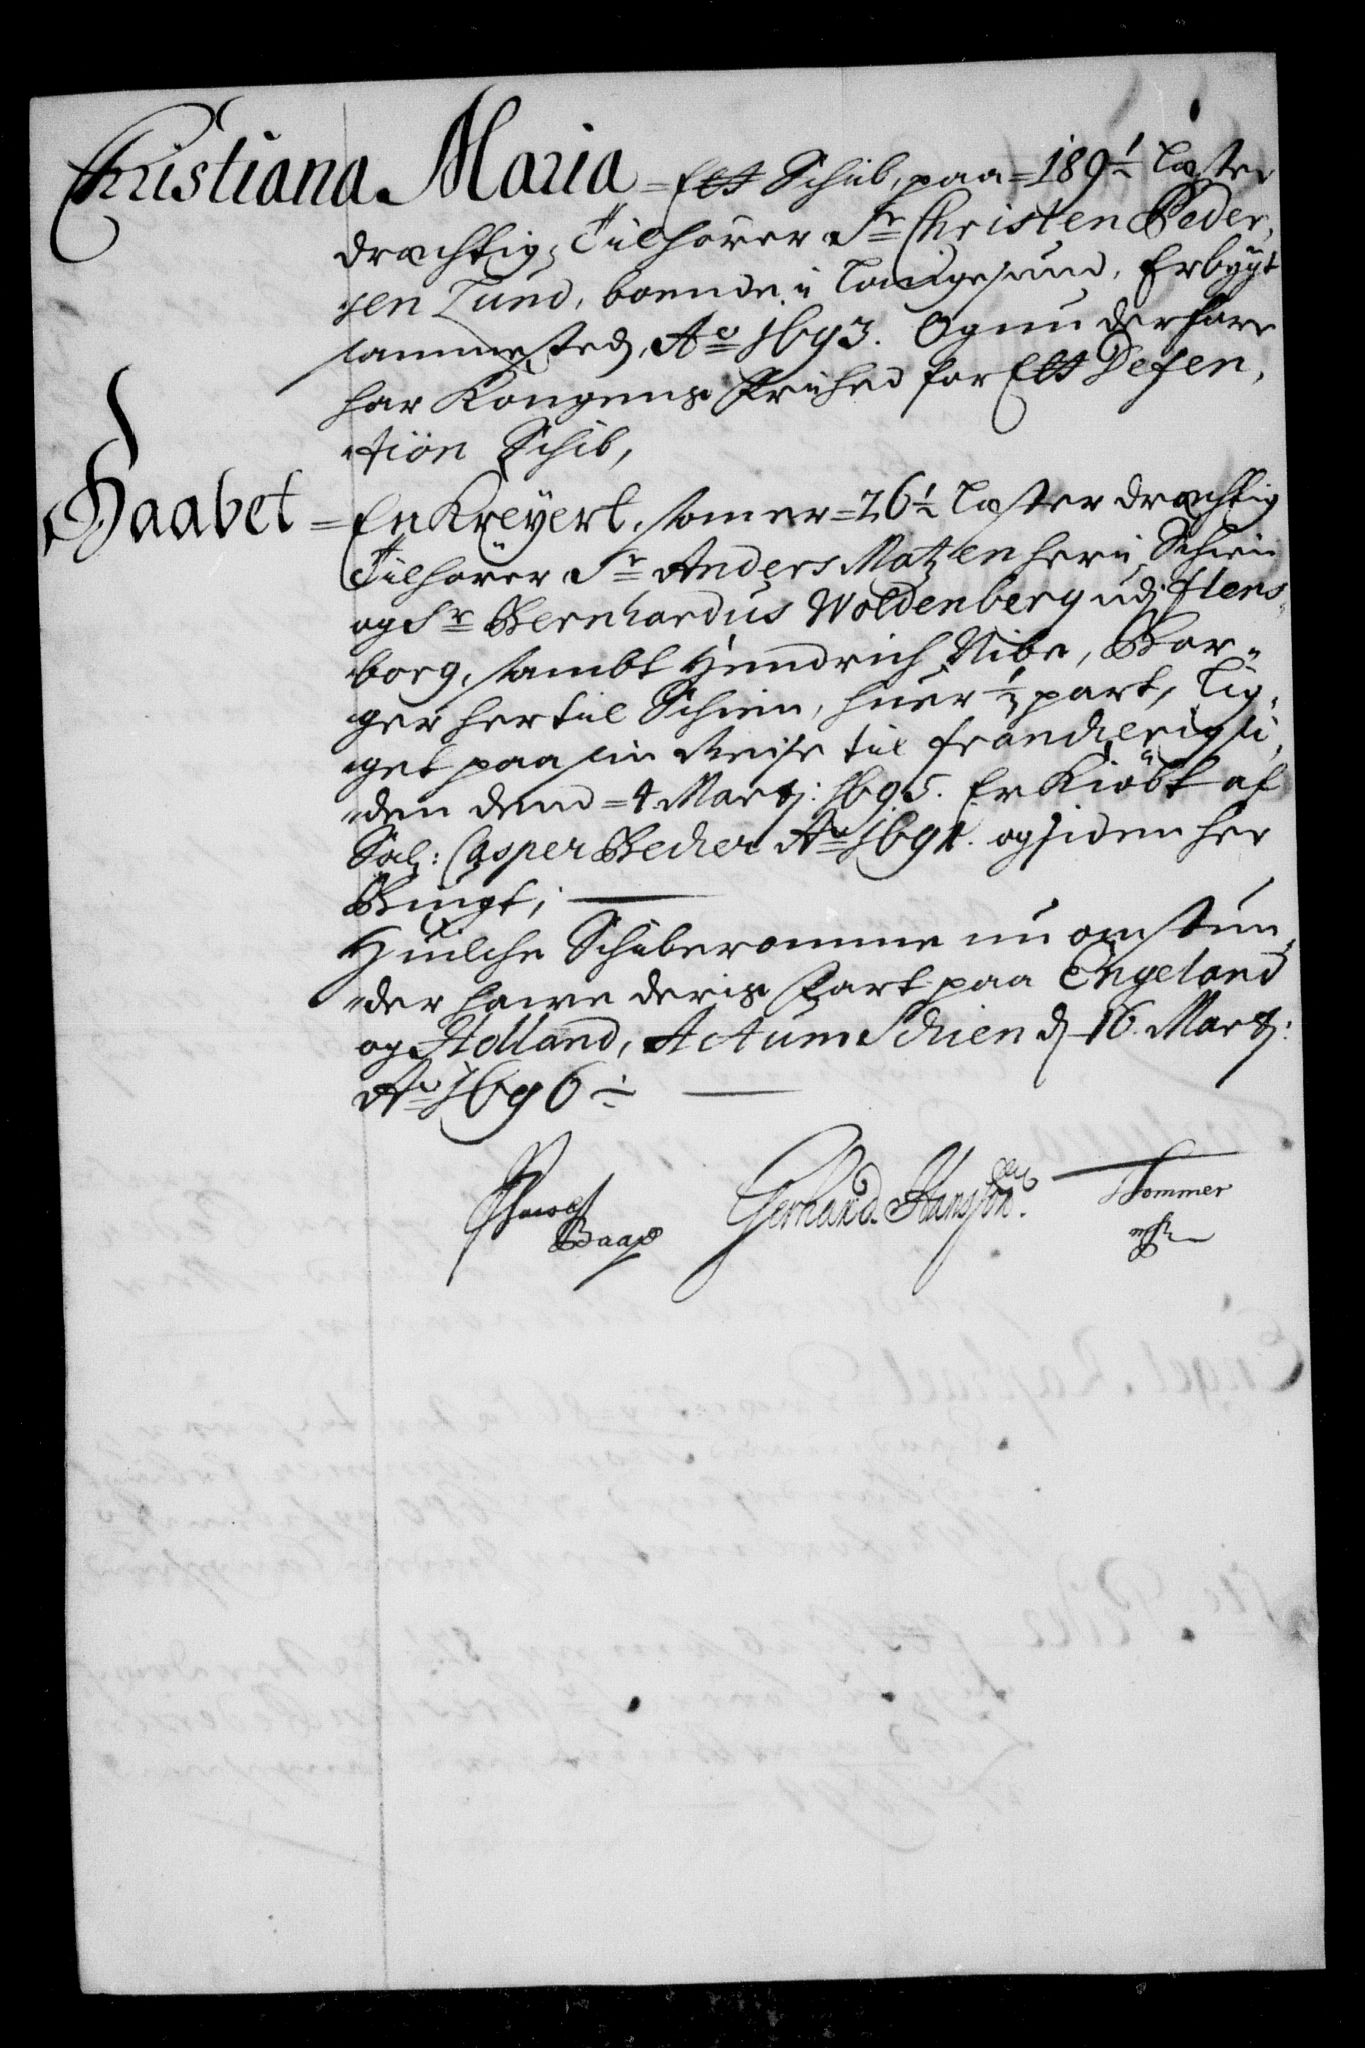 Christiana Maria = Ett Schib, paa = 189½ Læster
drægtig, Tilhører Sr Christen Peder,
sen Lund, boende i Langesund, Erbygt
sammested, Ao 1693. Og nu derfore
har Kongens Friihed for Ett Defen,
tion Schib,
Haabet = En Kreyert, som er = 26½ Læster drægtig
Tilhører Sr Anders Matzen her i Schien
og Sr Bernhardus Woldenberg udj Flens,
borg, sambt Hendrich Nibe, Bor,,
ger her til Schien, huer ⅓ part, Lig,
get paa sin Reise til Franckerig si,
den dend = 4 Martj: 1695. Er Kiöbt af
Sal: Casper Becher Ao 1691. og siden her
Brugt; —
Huilche Schiberomme nu omstun,
der hawe deris Fart paa Engeland
og Holland, Actum Schien d 16. Martj:
Ao 1696 ÷ —
Baas Gerhard Hansson. Sommer